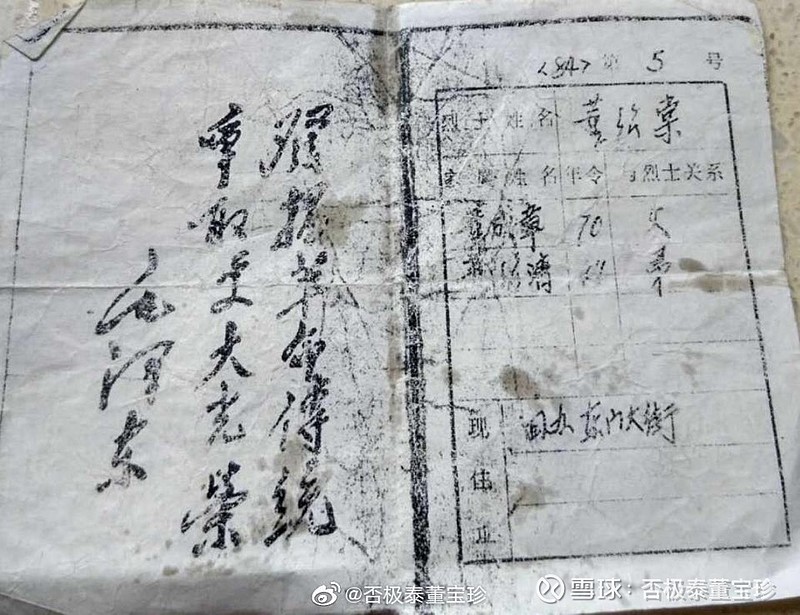 發揚革命傳統
爭取更大光榮
毛泽东
<84> 第 5 号
烈士姓名 董绍棠
家属姓名 年令 与烈士关系
董成章 70 父
董绍 弟
现住址 东门大街
@否极泰董宝珍
雪球：否极泰董宝珍